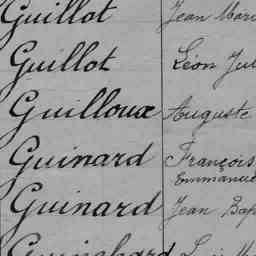 Guillot Jean Mari
Guillot Léon Jul
Guilloux Auguste
Guinard François
Emmanuel
Guinard Jean Bap